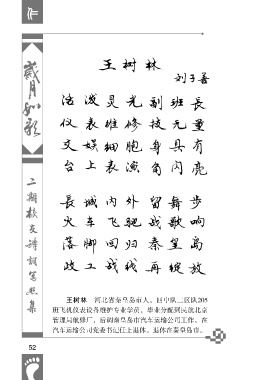 作
岁月如歌
二期校友诗词写照集
王树林
刘子善
活泼灵光副班长
仪表维修技无量
文娱细胞身具有
台上表演角闪亮
长城内外留舞步
火车飞驰战歌响
落脚回归秦皇岛
政工战线再绽放
王树林 河北省秦皇岛市人。四中队二区队205
班飞机仪表设备维护专业学员。毕业分配到民航北京
管理局航修厂，后调秦皇岛市汽车运输公司工作。在
汽车运输公司党委书记任上退休。退休在秦皇岛市。
52